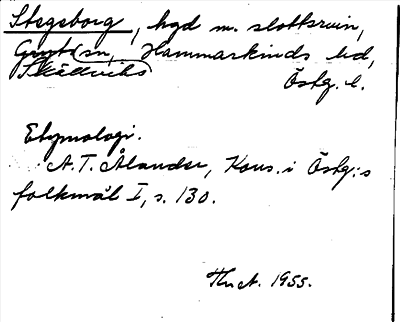 Stegeborg, hgd m. slottsruin,
sn, Hammarkinds hd,
Skällviks Östg. l.
Etymologi.
A. T. Ålander, Kons. i Östg:s
folkmål I, s. 130.
1955.